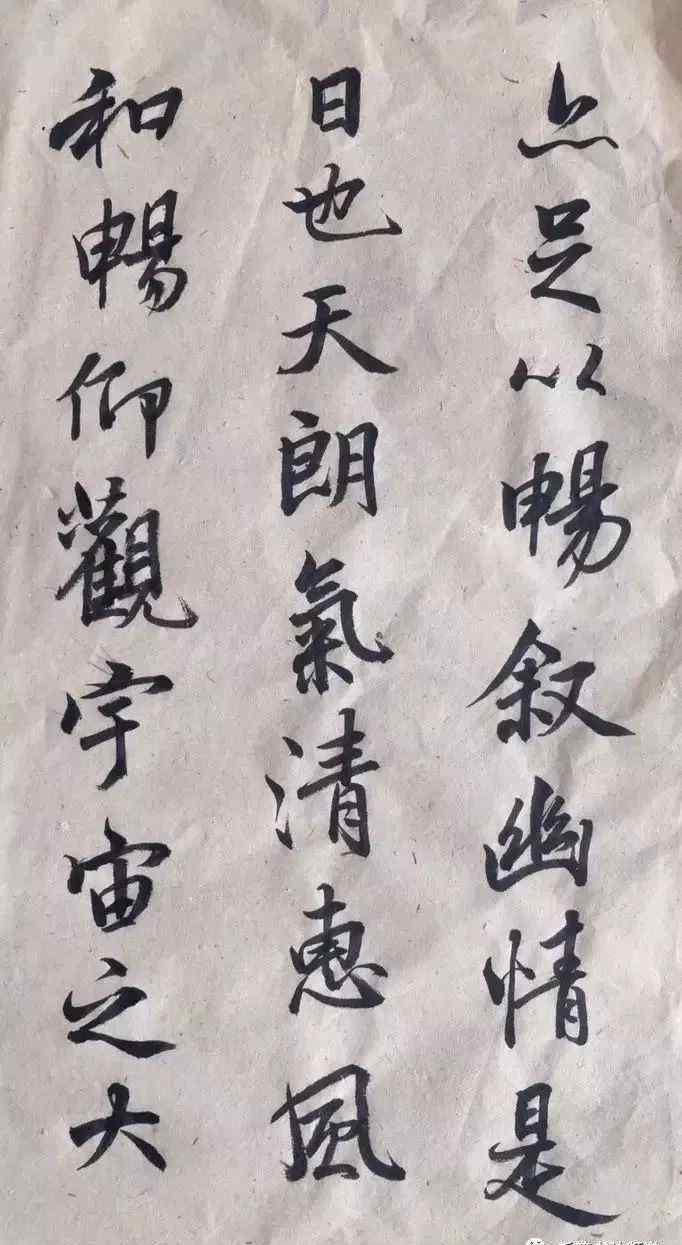 亦足以暢叙幽情是
日也天朗氣清惠風
和暢仰觀宇宙之大